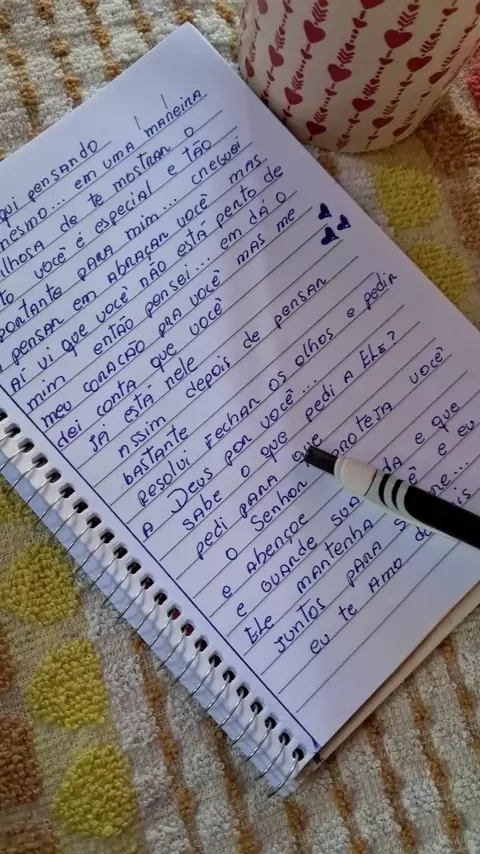 qui pensando
mesmo... em uma maneira
ilhosa de te mostrar o
to você é especial e tão
portante para mim... cheguei
pensar em abraçar você mas
Aí vi que você não está perto de
mim... então pensei... em dá o
meu coração pra você mas me
dei conta que você
já está nele...
Assim depois de pensar
bastante
resolvi fechar os olhos e pedir
A Deus por você...
sabe o que pedi a Ele?
pedi para que
o Senhor proteja você
e abençoe
e guarde sua da e que
Ele mantenha cê e eu
juntos para re...
eu te amo